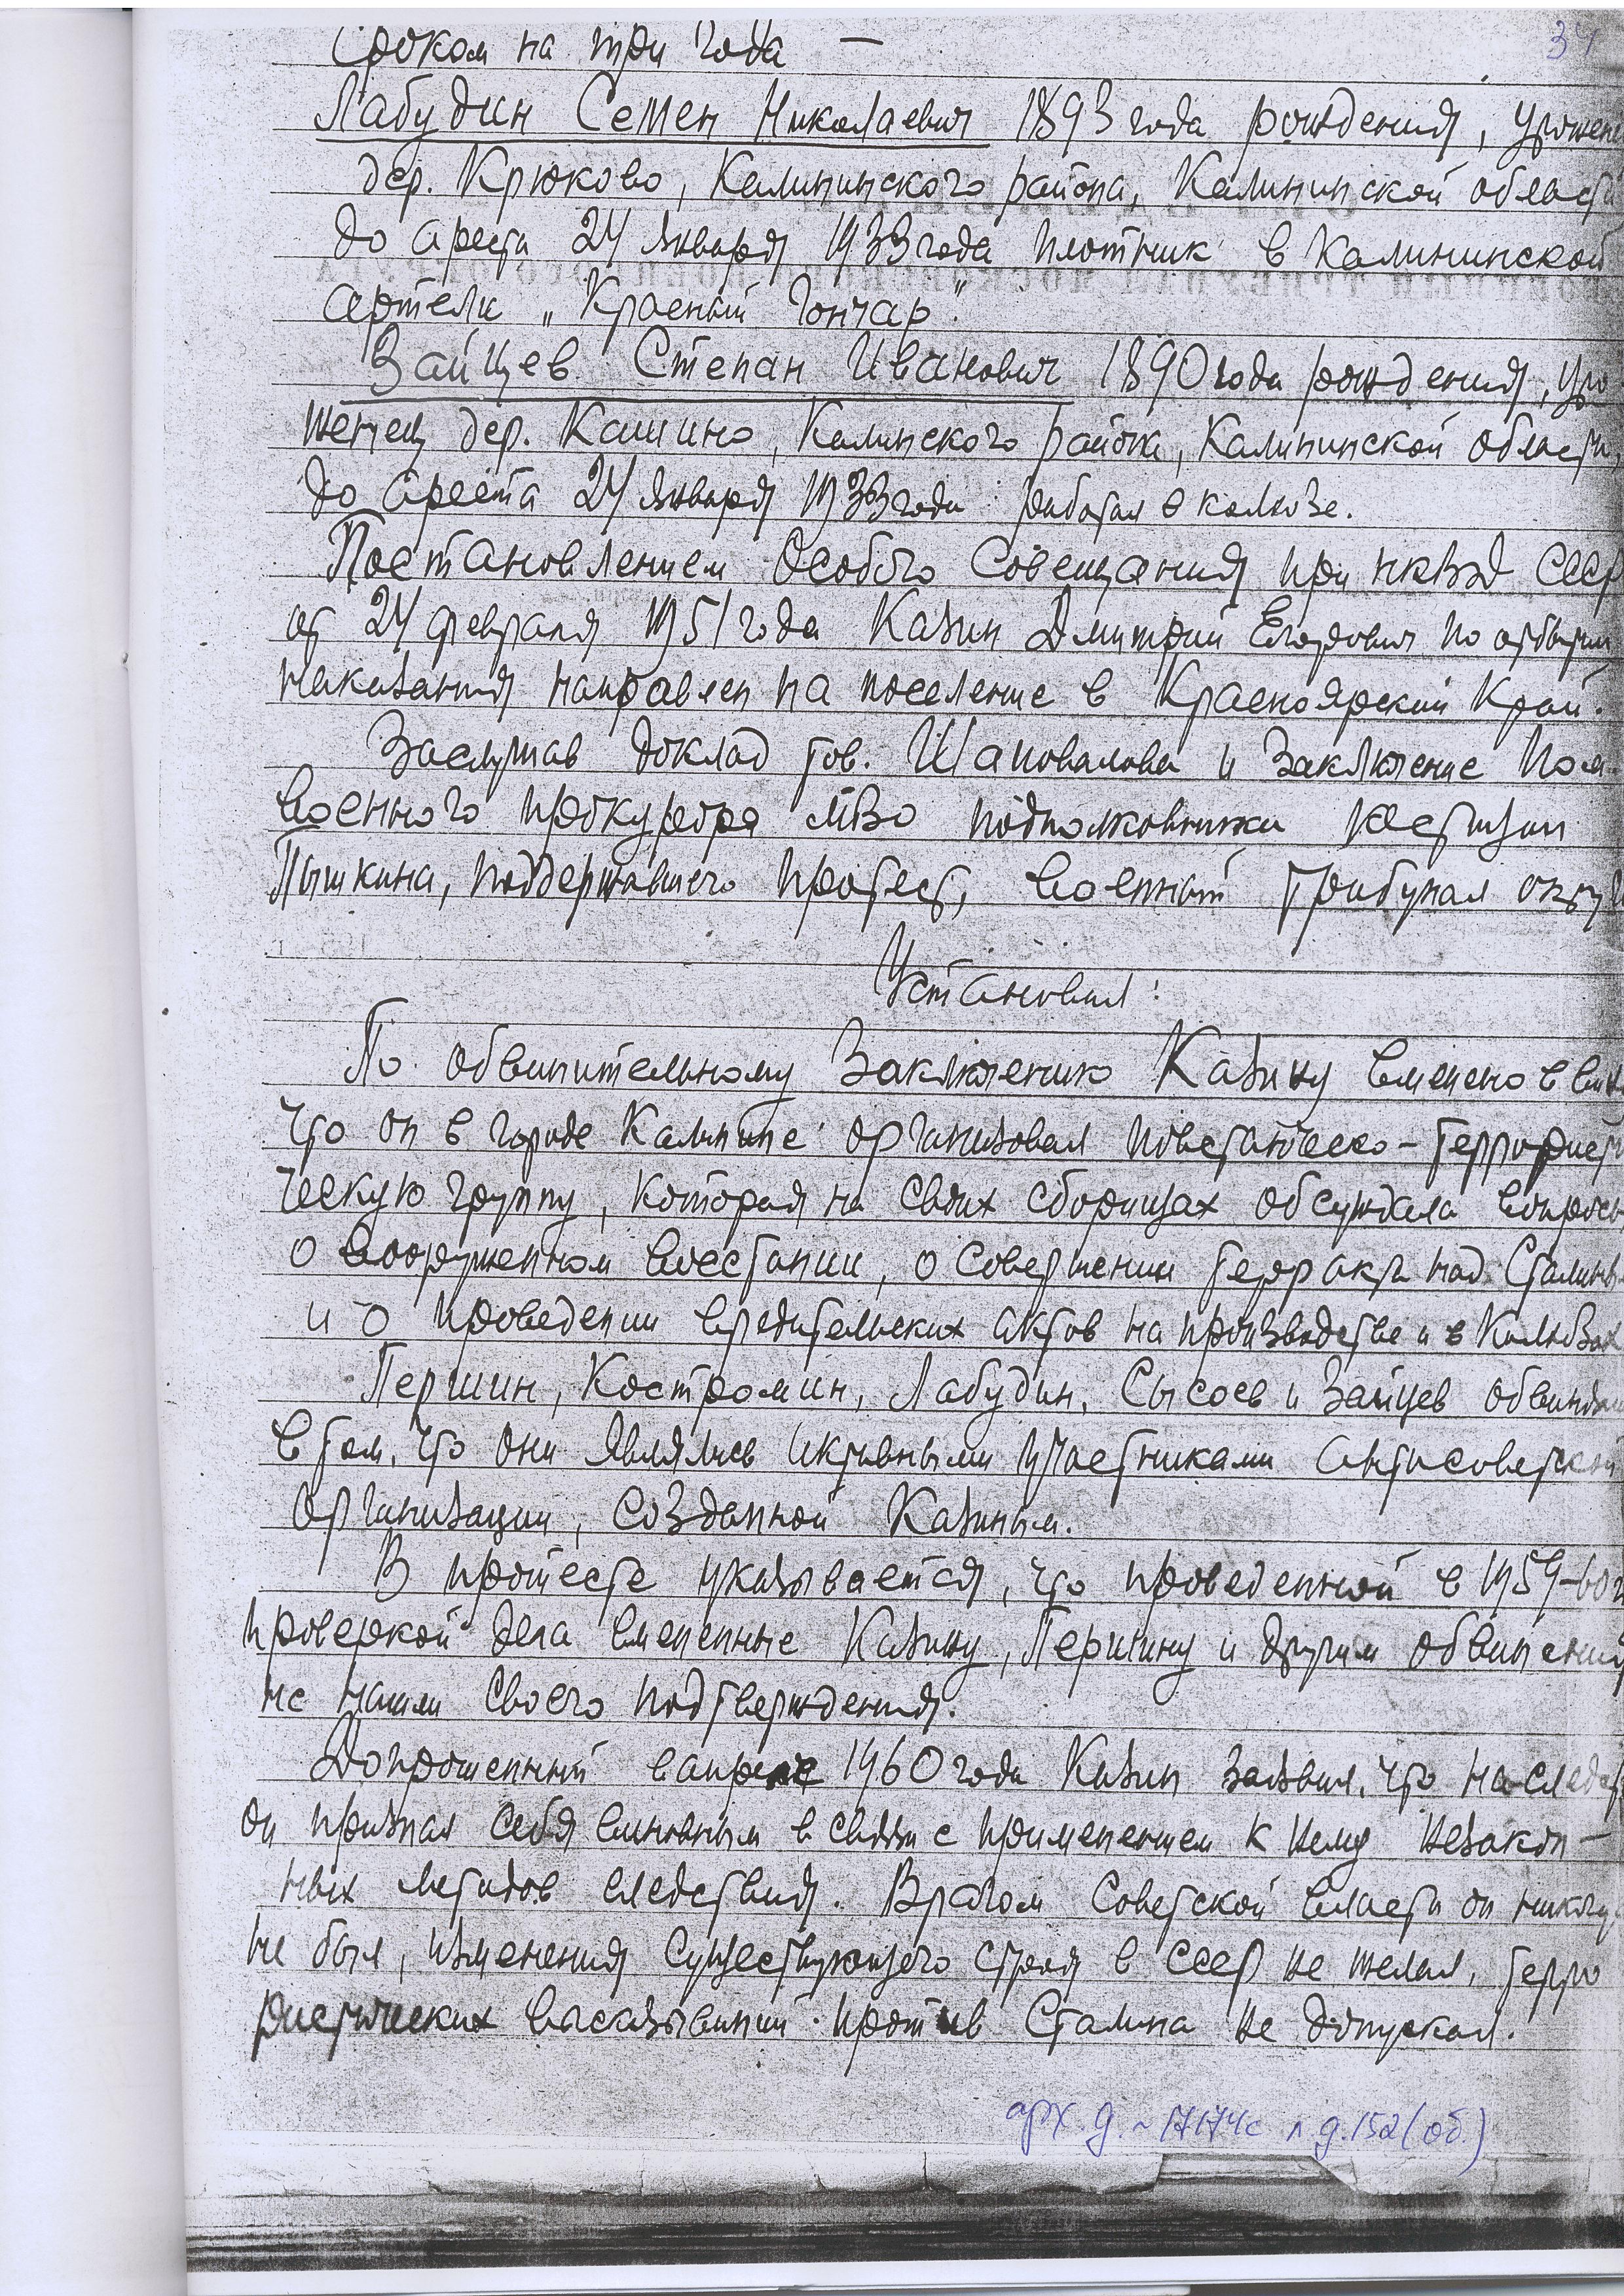 34
сроком на три года —
Лабудин Семен Николаевич 1893 года рождения, урожен
дер. Крюково, Калининского района, Калининской област
до ареста 24 января 1933 года плотник в Калининской
артели „Красный Гончар".
Зайцев Степан Иванович 1890 года рождения, уро
женец дер. Кашино, Калинского района, Калининской области,
до ареста 24 января 1933 года работал в колхозе.
Постановлением Особого Совещания при НКВД СССР
от 24 февраля 1951 года Казин Дмитрий Егорович по отбытии
наказания направлен на поселение в Красноярский Край.
Заслушав доклад тов. Шаповалова и заключение Пом.
Военного прокурора МВО подполковника юстиции
Пышкина, поддержавшего протест, Военный Трибунал округа
Установил:
По обвинительному Заключению Казину вменено в вину
что он в городе Калинине организовал повстанческо-террористи
ческую группу, которая на своих сборищах обсуждала вопросы
о вооруженном восстании, о совершении теракта над Сталины
и о проведении вредительских актов на производстве и в Колхозах
Першин, Костромин, Лабудин, Сысоев и Зайцев обвиня
в том, что они являлись активными участниками антисоветской
организации, созданной Казиным.
В протесте указывается, что проведенной в 1959-60
проверкой дела вмененные Казину, Першину и другим обвинения
не нашли своего подтверждения.
Допрошенный в апреле 1960 года Казин заявил, что на следст
он признал себя виновным в связи с применением к нему незакон-
ных методов следствия. Врагом Советской власти он никогда
не был, изменения существующего строя в СССР не желал, терро
ристических высказываний против Сталина не допускал.
арх. д. ~ 17174с л д. 152 (об.)